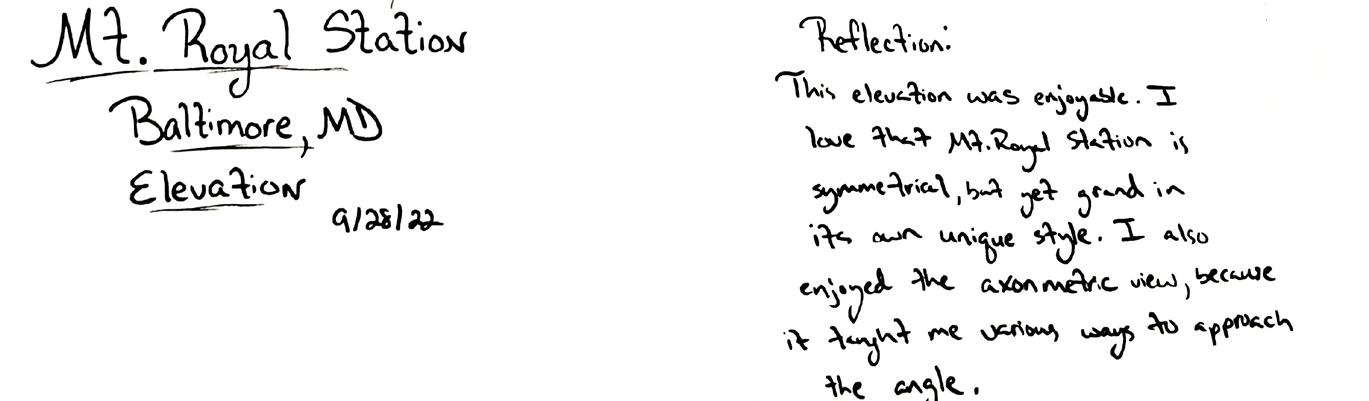 Mt. Royal Station
Baltimore, MD
Elevation
9/28/22
Reflection:
This elevation was enjoyable. I
love that Mt. Royal Station is
symmetrical, but yet grand in
its own unique style. I also
enjoyed the axonmetric view, because
it taught me various ways to approach
the angle.